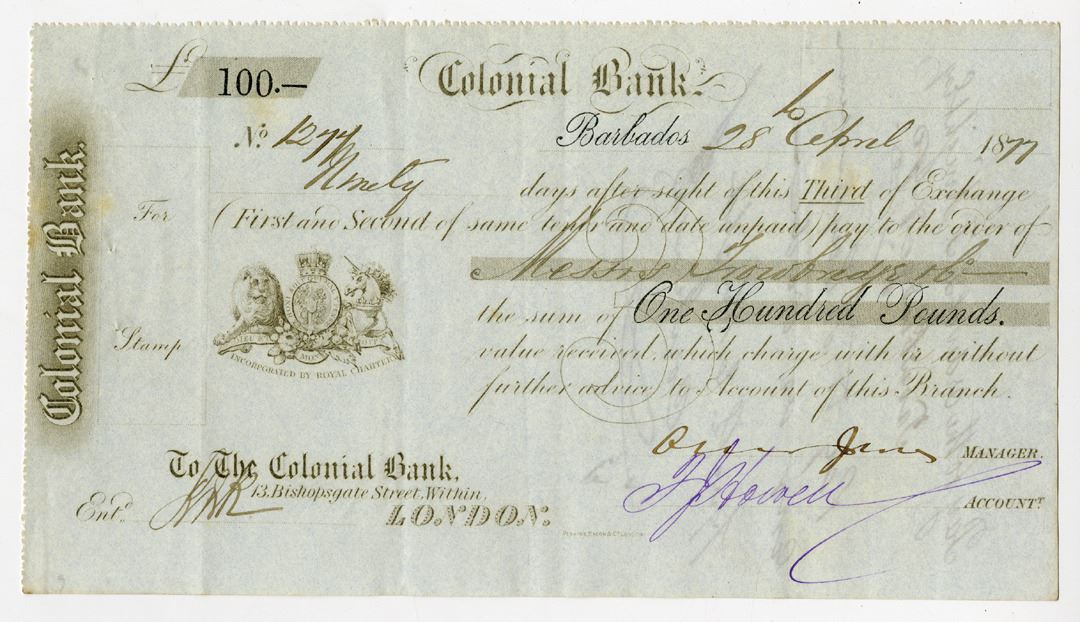 Colonial Bank.
£ 100.—
Colonial Bank.
No. 1277
Barbados 28 April 1877
Ninety days after sight of this Third of Exchange
For
(First and Second of same tenor and date unpaid) pay to the order of
Messrs Trowbridge & Co —
the sum of One Hundred Pounds.
Stamp
DIEU ET MON DROIT
INCORPORATED BY ROYAL CHARTER
value received, which charge with or without
further advice to Account of this Branch.
MANAGER.
To The Colonial Bank,
13, Bishopsgate Street, Within,
LONDON.
Entd.
Howell
ACCOUNTT